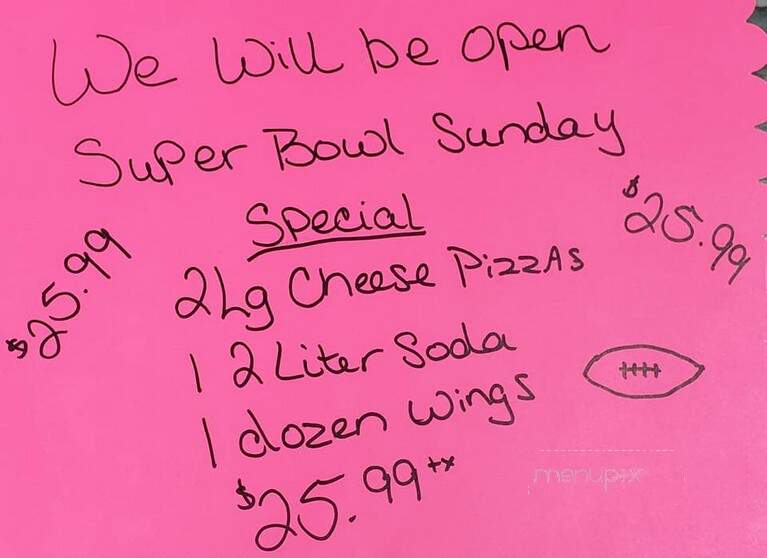 We will be open
Super Bowl Sunday
Special
$25.99
$25.99
2 Lg Cheese Pizzas
1 2 Liter Soda
1 dozen wings
$25.99 +x
menupix